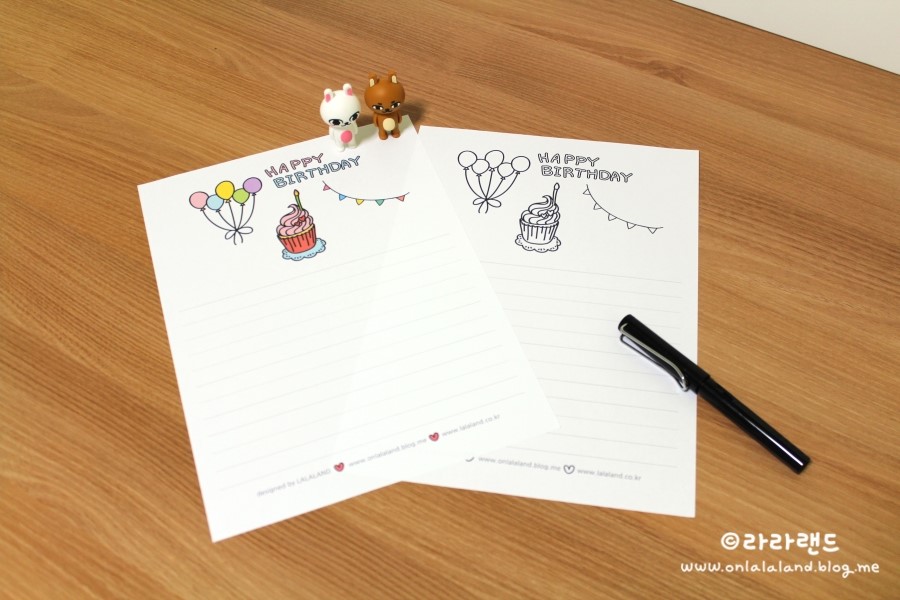 HAPPY
BIRTHDAY
designed by LALALAND www.onlalaland.blog.me www.lalaland.co.kr
HAPPY
BIRTHDAY
www.onlalaland.blog.me www.lalaland.co.kr
©라라랜드
www.onlalaland.blog.me